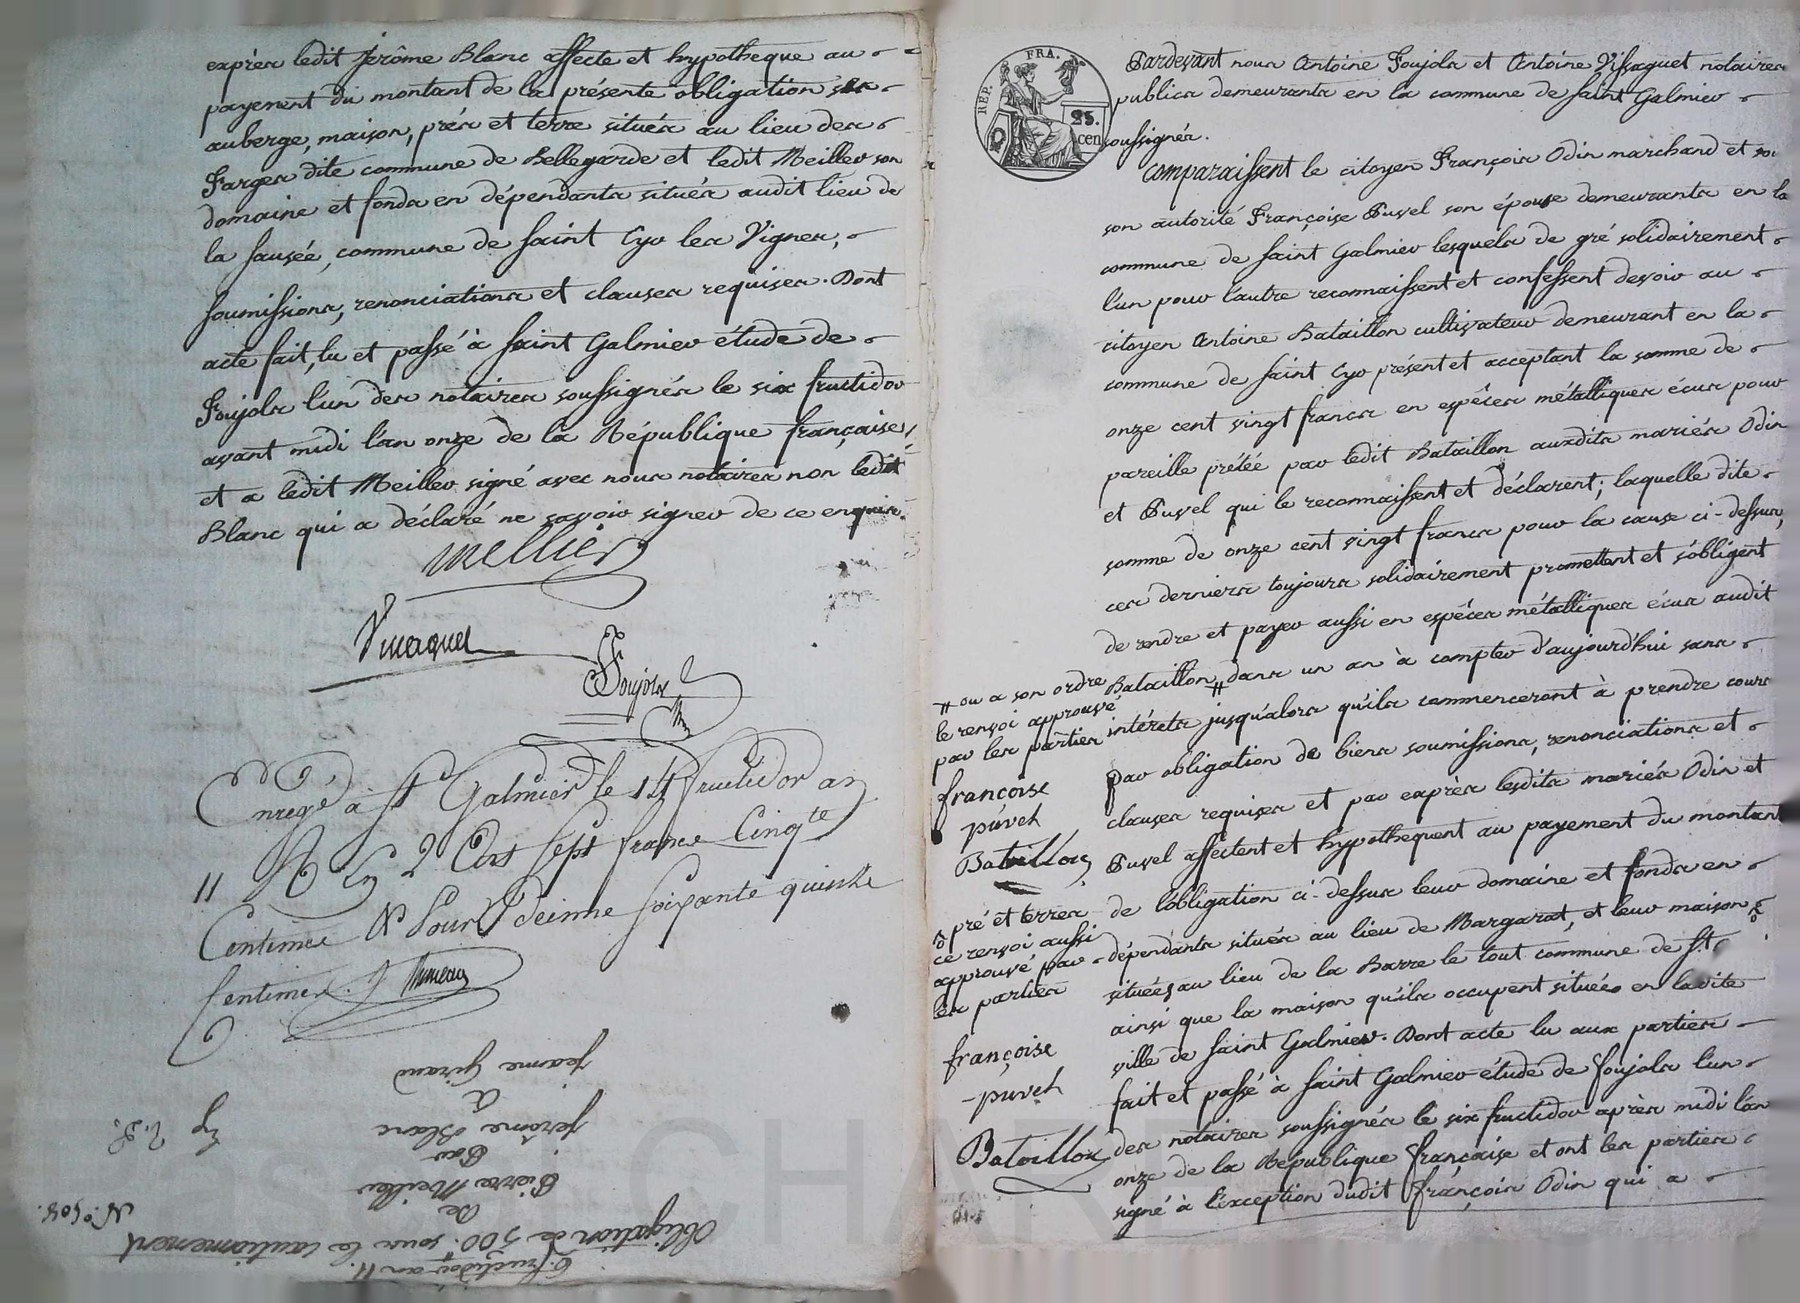 exprès ledit Jérôme Blanc affecte et hypotheque au
payement du montant de la présente obligation ses
auberge, maison, prés et terre situés au lieu des
Farges dite commune de Bellegarde et ledit Meiller son
domaine et fonds en dépendants situés audit lieu de
la fausée, commune de Saint Cyr les Vignes,
soumissions, renonciations et clauses requises. Dont
acte fait, lu et passé à Saint Galmier étude de
Foujols l'un des notaires soussignés le six fructidor
avant midi l'an onze de la République française,
et a ledit Meiller signé avec nous notaires non ledit
Blanc qui a déclaré ne savoir signer de ce enquis.
Mellier
Foujols
Enregé à St Galmier le 14 fructidor an
11 2 Cent sept francs Cinqte
Centimes soixante quinze
Centimes
Jeanne Giraud
à
Jérôme Blanc
Par
Pierre Meiller
De
Obligation de 500 sous le cautionnement
6 fructidor an 11
REP. FRA.
25.
cen
Pardevant nous Antoine Foujols et Antoine Vissaguet notaires
publics demeurants en la commune de Saint Galmier
soussignés.
Comparaissent le citoyen François Odin marchand et so
son autorité Françoise Puvel son épouse demeurants en la
commune de Saint Galmier lesquels de gré solidairement
l'un pour l'autre reconnaissent et confessent devoir au
citoyen Antoine Bataillon cultivateur demeurant en la
commune de Saint Cyr présent et acceptant la somme de
onze cent vingt francs en espèces métalliques écus pour
pareille prêtée par ledit Bataillon auxdits mariés Odin
et Puvel qui le reconnaissent et déclarent; laquelle dite
somme de onze cent vingt francs pour la cause ci-dessus,
ces derniers toujours solidairement promettent et s'obligent
de rendre et payer aussi en espèces métalliques écus audit
Bataillon, # dans un an à compter d'aujourd'hui sans
intérets jusqu'alors qu'ils commenceront à prendre cours
par obligation de biens soumissions, renonciations et
clauses requises et par exprès lesdits mariés Odin et
Puvel affectent et hypothequent au payement du montant
de l'obligation ci-dessus leur domaine et fonds en
dépendants situés au lieu de Margarat, et leur maison
situées au lieu de la Barre le tout commune de St
ainsi que la maison qu'ils occupent située en ladite
ville de Saint Galmier. Dont acte lu aux parties
fait et passé à Saint Galmier étude de Foujols l'un
des notaires soussignés le six fructidor après midi l'an
onze de la République française et ont les parties
signé à l'exception dudit François Odin qui a
# ou a son ordre
le renvoi approuvé
par les parties
francoise
puvel
Bataillon
pré et terres
ce renvoi aussi
approuvé par
les parties
françoise
puvel
Bataillon